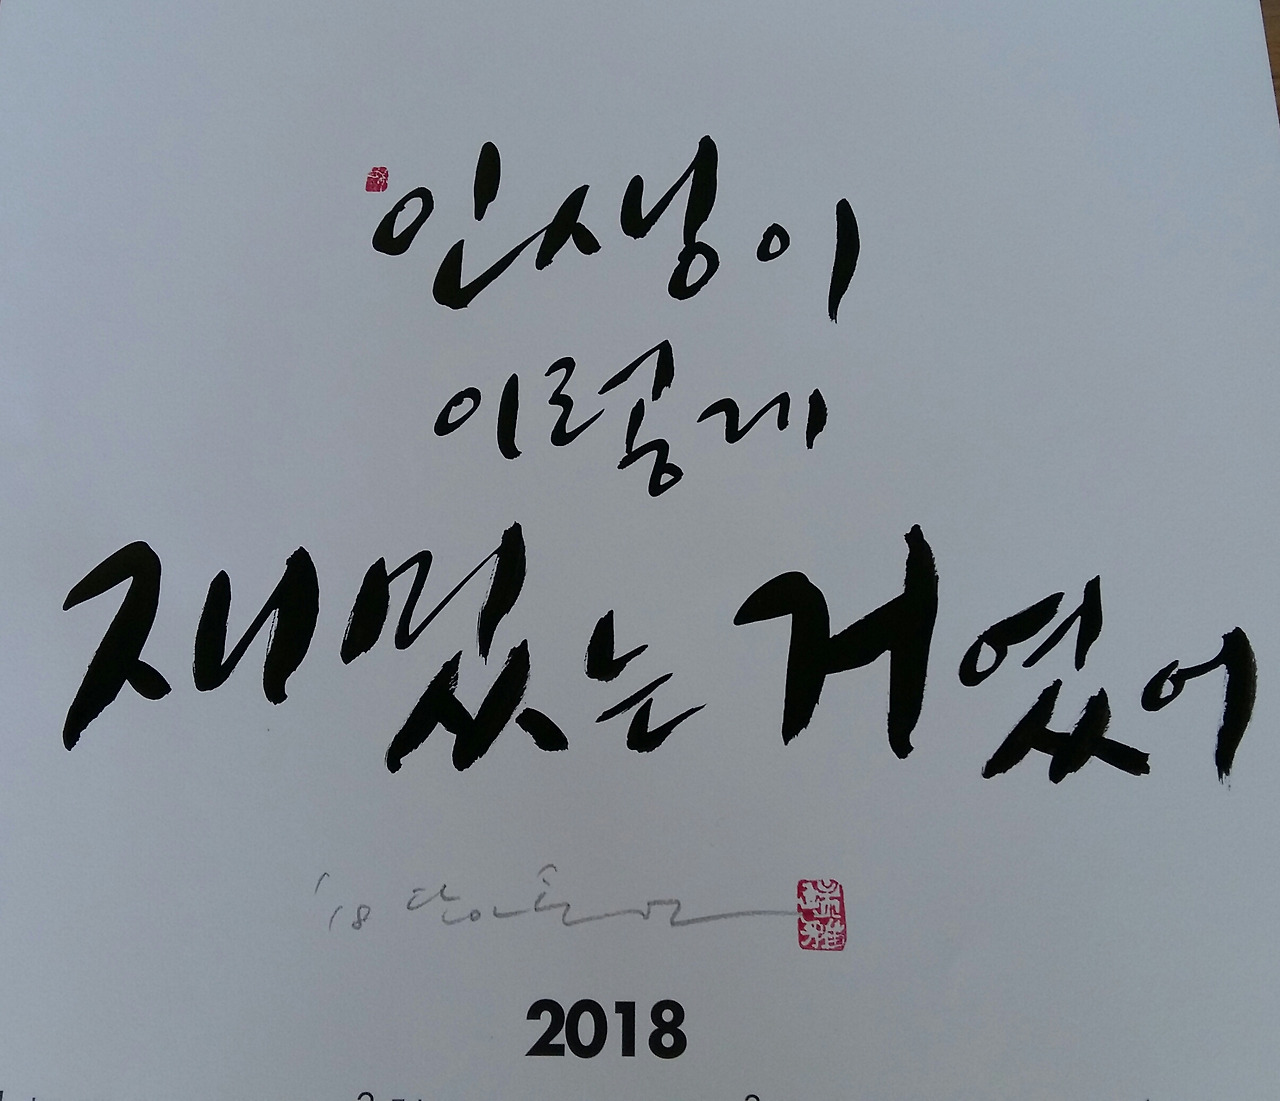 인생이
이렇게
재밌는 거였어
'18
2018